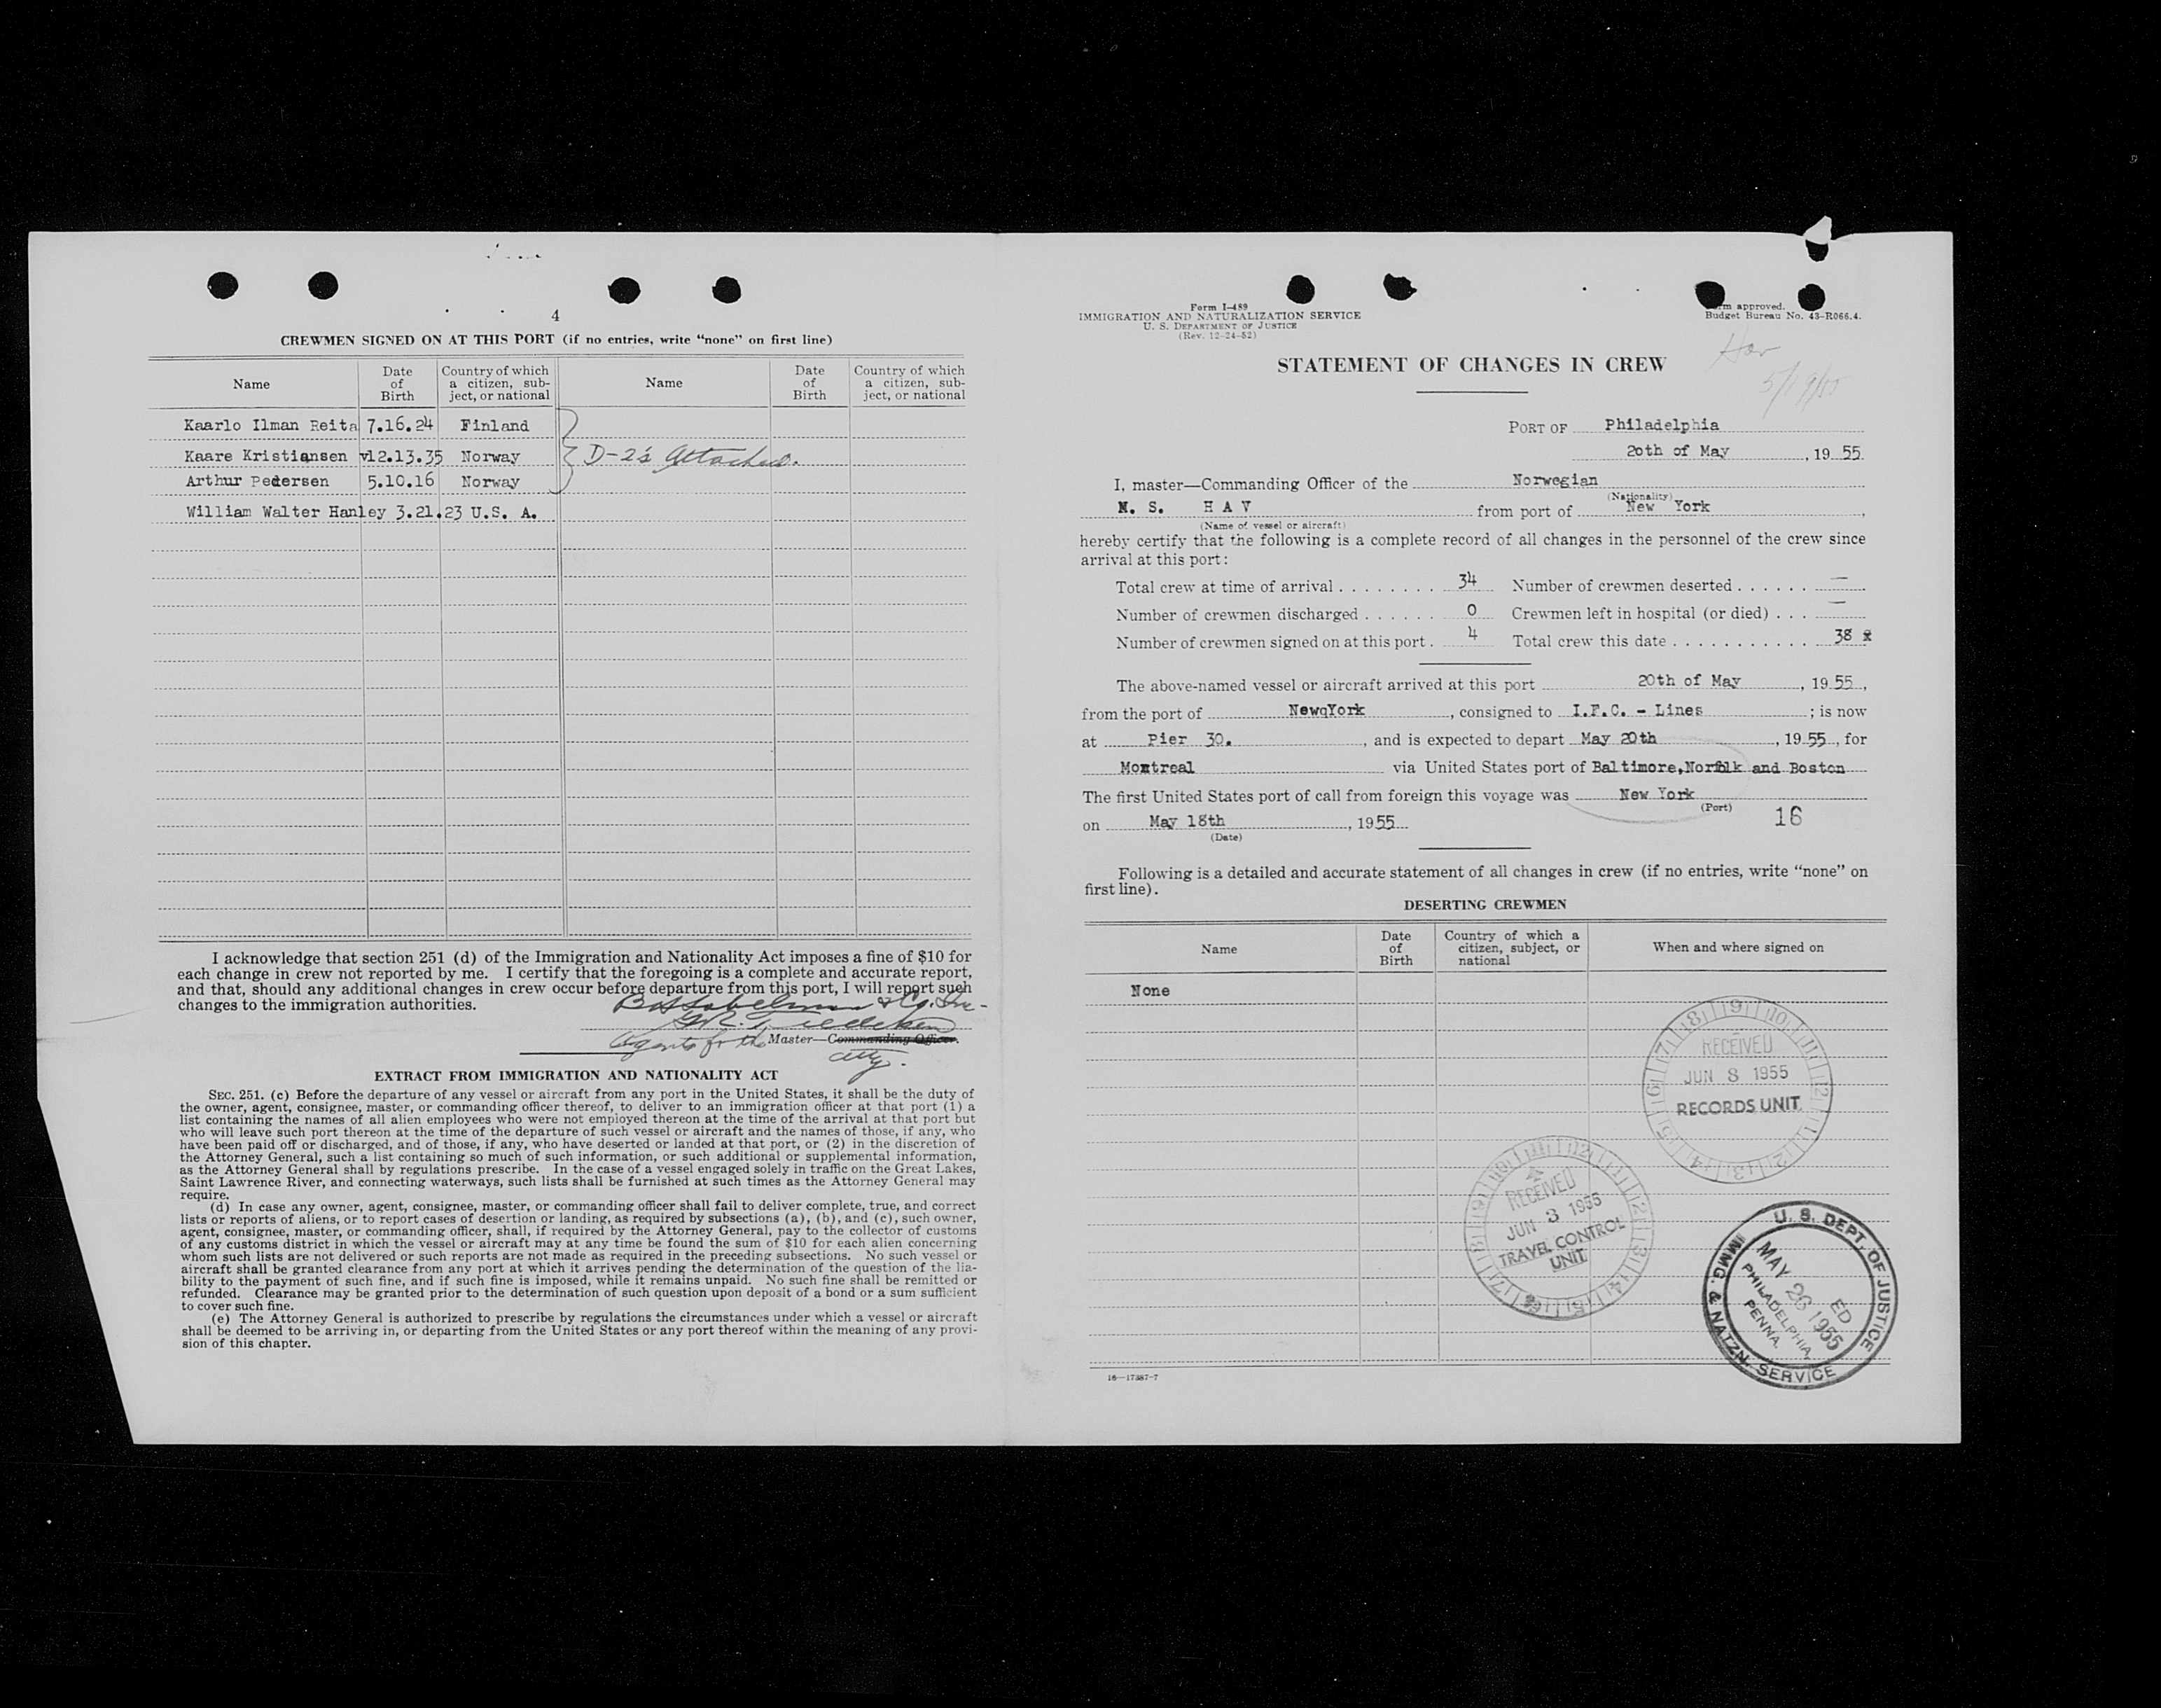 4
CREWMEN SIGNED ON AT THIS PORT (if no entries, write "none" on first line)
Name Date of Birth Country of which a citizen, subject, or national Name Date of Birth Country of which a citizen, subject, or national
Kaarlo Ilman Reita 7.16.24 Finland
Kaare Kristiansen 12.13.35 Norway D-2's Attached.
Arthur Pedersen 5.10.16 Norway
William Walter Hanley 3.21.23 U.S. A.
I acknowledge that section 251 (d) of the Immigration and Nationality Act imposes a fine of $10 for
each change in crew not reported by me. I certify that the foregoing is a complete and accurate report,
and that, should any additional changes in crew occur before departure from this port, I will report such
changes to the immigration authorities.
& Co. Inc.
Agents for the Master—Commanding Officer.
atty.
EXTRACT FROM IMMIGRATION AND NATIONALITY ACT
SEC. 251. (c) Before the departure of any vessel or aircraft from any port in the United States, it shall be the duty of
the owner, agent, consignee, master, or commanding officer thereof, to deliver to an immigration officer at that port (1) a
list containing the names of all alien employees who were not employed thereon at the time of the arrival at that port but
who will leave such port thereon at the time of the departure of such vessel or aircraft and the names of those, if any, who
have been paid off or discharged, and of those, if any, who have deserted or landed at that port, or (2) in the discretion of
the Attorney General, such a list containing so much of such information, or such additional or supplemental information,
as the Attorney General shall by regulations prescribe. In the case of a vessel engaged solely in traffic on the Great Lakes,
Saint Lawrence River, and connecting waterways, such lists shall be furnished at such times as the Attorney General may
require.
(d) In case any owner, agent, consignee, master, or commanding officer shall fail to deliver complete, true, and correct
lists or reports of aliens, or to report cases of desertion or landing, as required by subsections (a), (b), and (c), such owner,
agent, consignee, master, or commanding officer, shall, if required by the Attorney General, pay to the collector of customs
of any customs district in which the vessel or aircraft may at any time be found the sum of $10 for each alien concerning
whom such lists are not delivered or such reports are not made as required in the preceding subsections. No such vessel or
aircraft shall be granted clearance from any port at which it arrives pending the determination of the question of the lia-
bility to the payment of such fine, and if such fine is imposed, while it remains unpaid. No such fine shall be remitted or
refunded. Clearance may be granted prior to the determination of such question upon deposit of a bond or a sum sufficient
to cover such fine.
(e) The Attorney General is authorized to prescribe by regulations the circumstances under which a vessel or aircraft
shall be deemed to be arriving in, or departing from the United States or any port thereof within the meaning of any provi-
sion of this chapter.
Form I-489
IMMIGRATION AND NATURALIZATION SERVICE
U. S. DEPARTMENT OF JUSTICE
(Rev. 12-24-52)
approved.
Budget Bureau No. 43-R066.4.
STATEMENT OF CHANGES IN CREW
PORT OF Philadelphia
20th of May, 19 55
I, master—Commanding Officer of the Norwegian
(Nationality)
M. S. HAV from port of New York,
(Name of vessel or aircraft)
hereby certify that the following is a complete record of all changes in the personnel of the crew since
arrival at this port:
Total crew at time of arrival 34 Number of crewmen deserted —
Number of crewmen discharged 0 Crewmen left in hospital (or died) —
Number of crewmen signed on at this port 4 Total crew this date 38 x
The above-named vessel or aircraft arrived at this port 20th of May, 19 55,
from the port of NewqYork, consigned to I.F.C. - Lines; is now
at Pier 30., and is expected to depart May 20th, 19 55, for
Montreal via United States port of Baltimore,Norfolk and Boston
The first United States port of call from foreign this voyage was New York
(Port)
on May 18th, 1955
(Date)
16
Following is a detailed and accurate statement of all changes in crew (if no entries, write "none" on
first line).
DESERTING CREWMEN
Name Date of Birth Country of which a citizen, subject, or national When and where signed on
None
RECEIVED
JUN 8 1955
RECORDS UNIT
RECEIVED
JUN 3 1955
TRAVEL CONTROL
UNIT
U. S. DEPT. OF JUSTICE
IMMG. & NATZN. SERVICE
MAY 26 1955
PHILADELPHIA,
PENNA.
16—17387-7